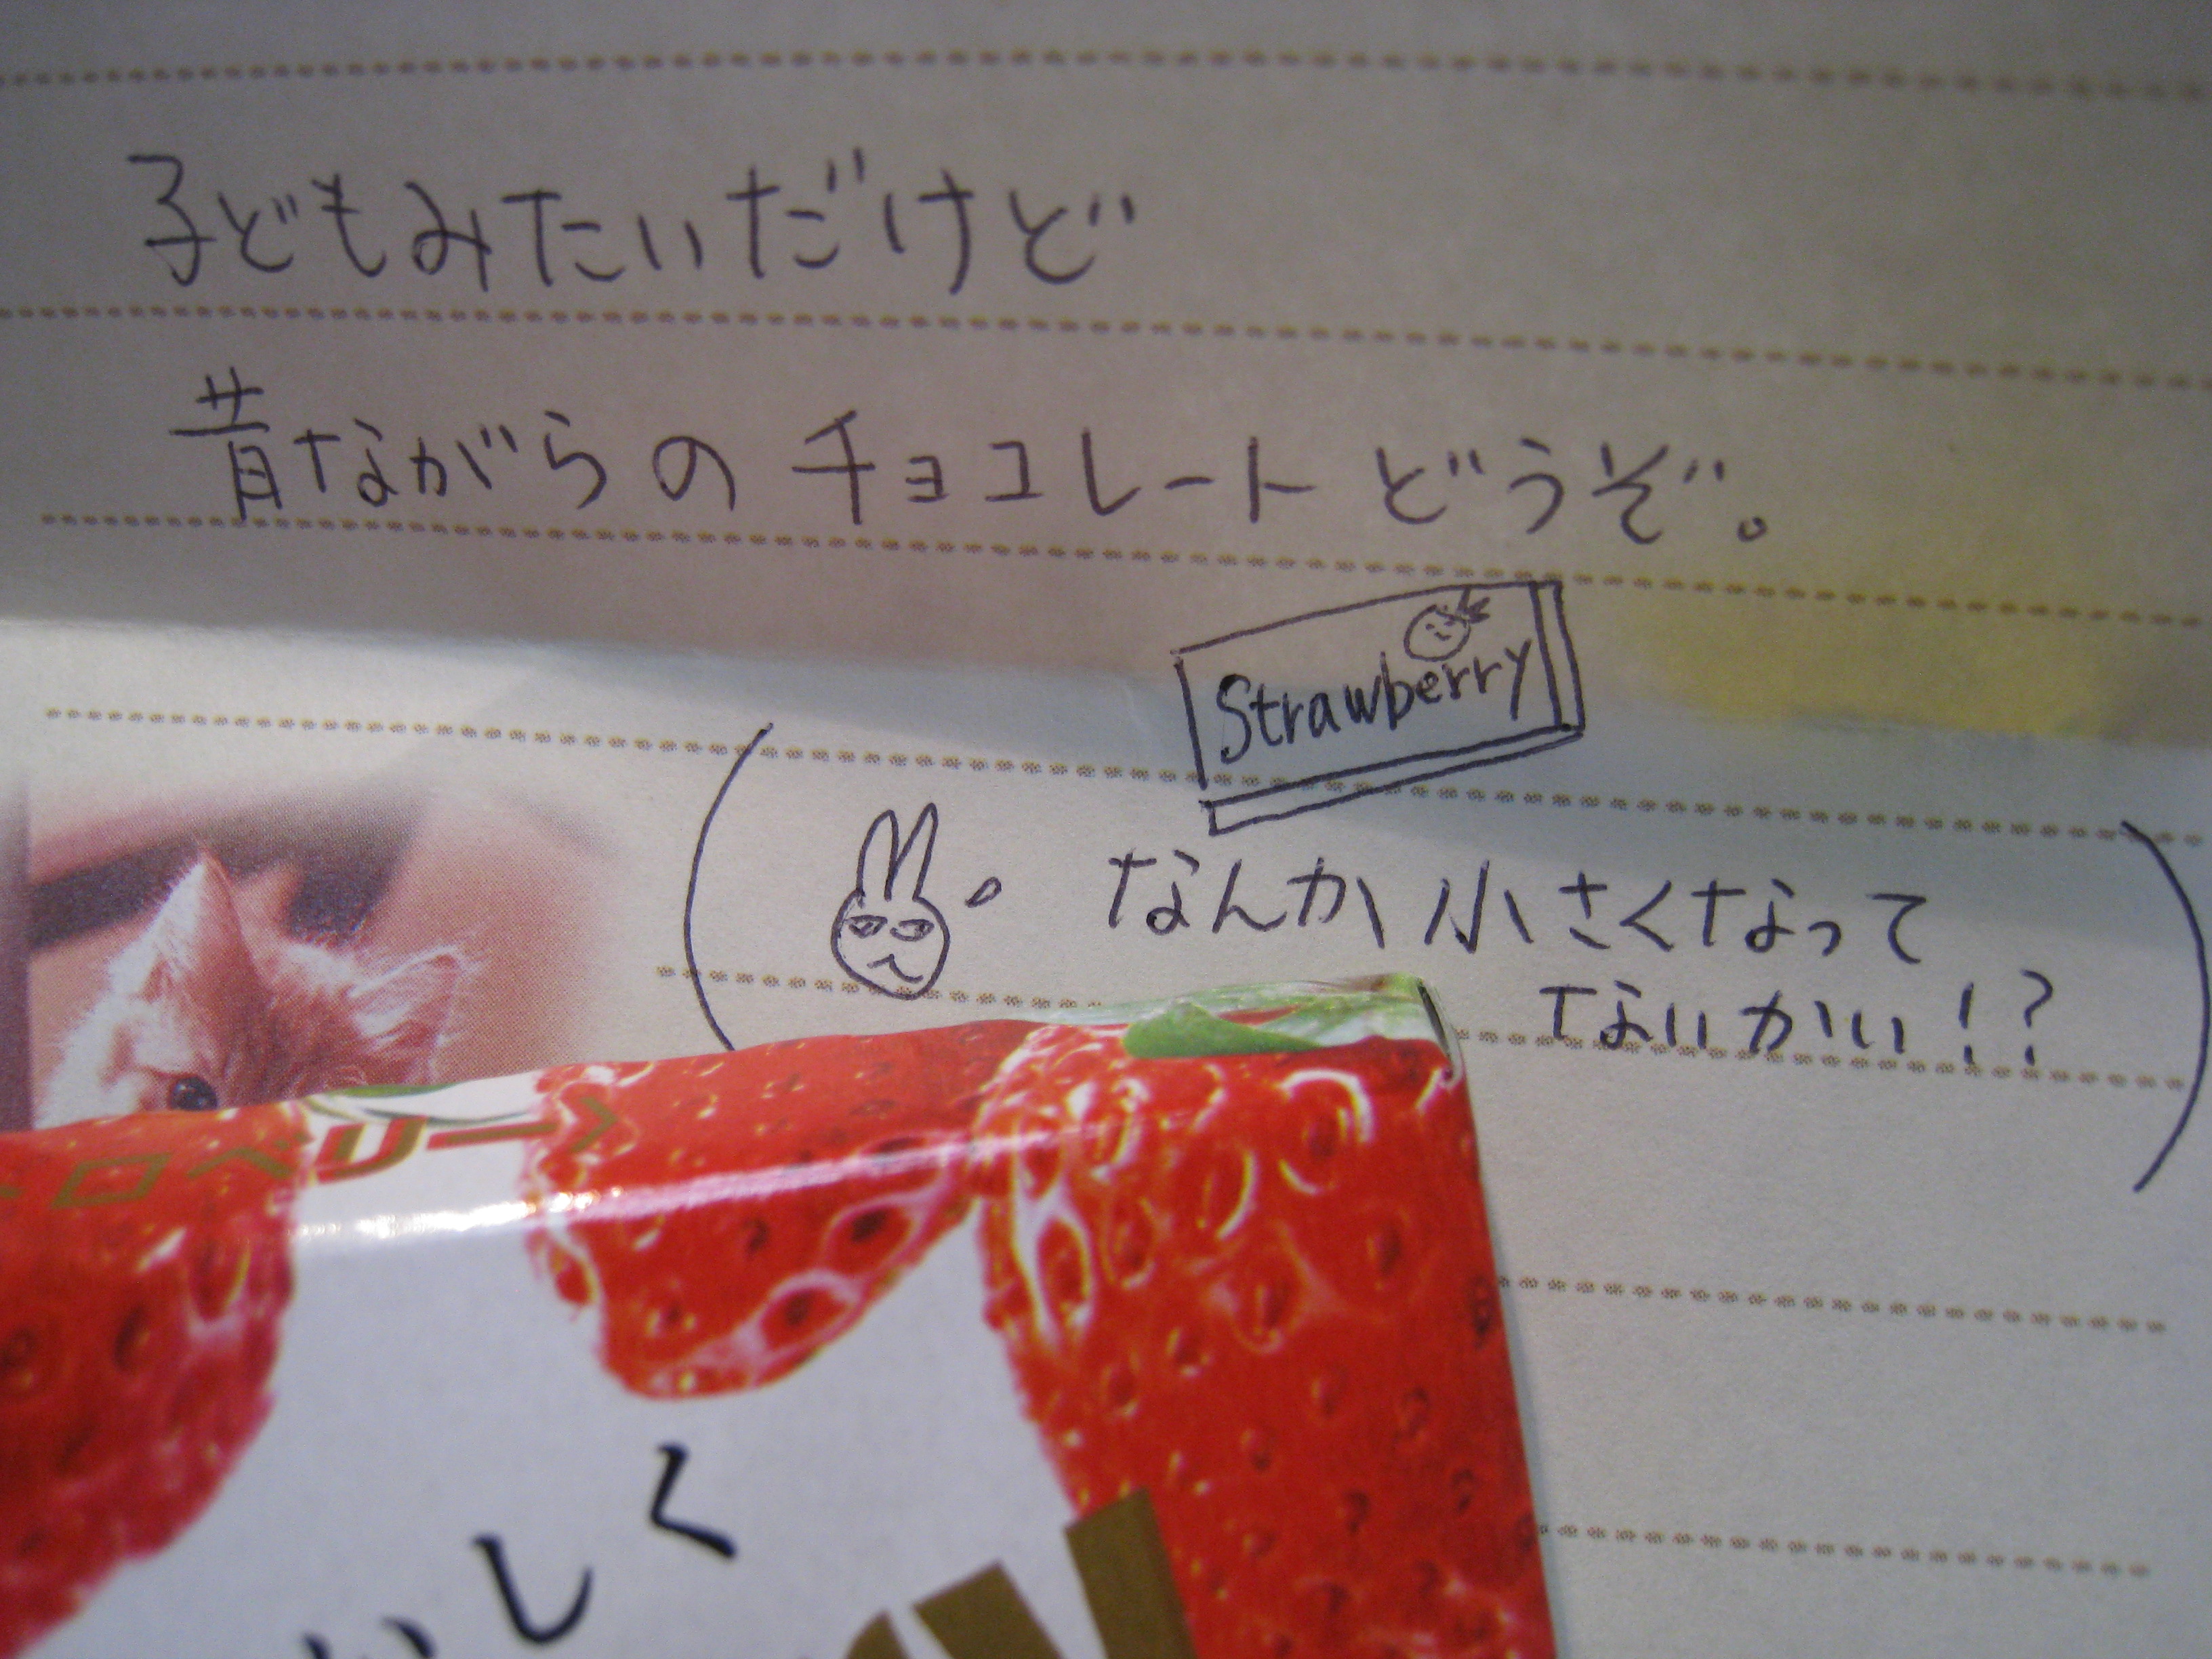 子どもみたいだけど
昔ながらの チョコレート どうぞ。
Strawberry
なんか 小さくなって
ないかい！？
ロベリー
しく